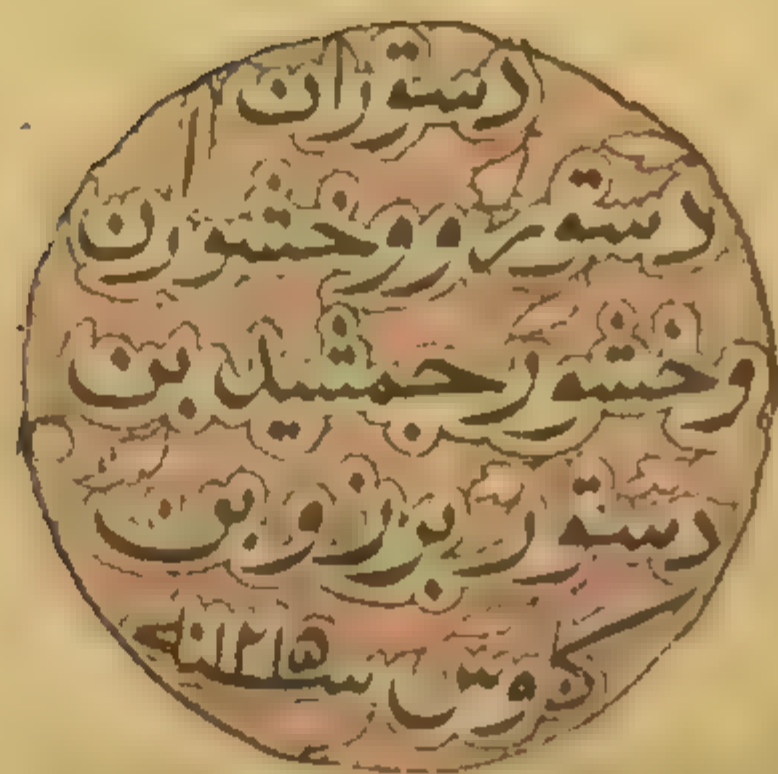 دستوران
دستور و وخشورن
وخشور جمشید بن
دستور برزو بن
کاوس سنه ۱۲۱۵